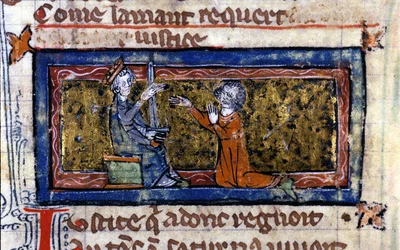 Come lamant requert
iustice
Iustice q̃ adonc regnoit